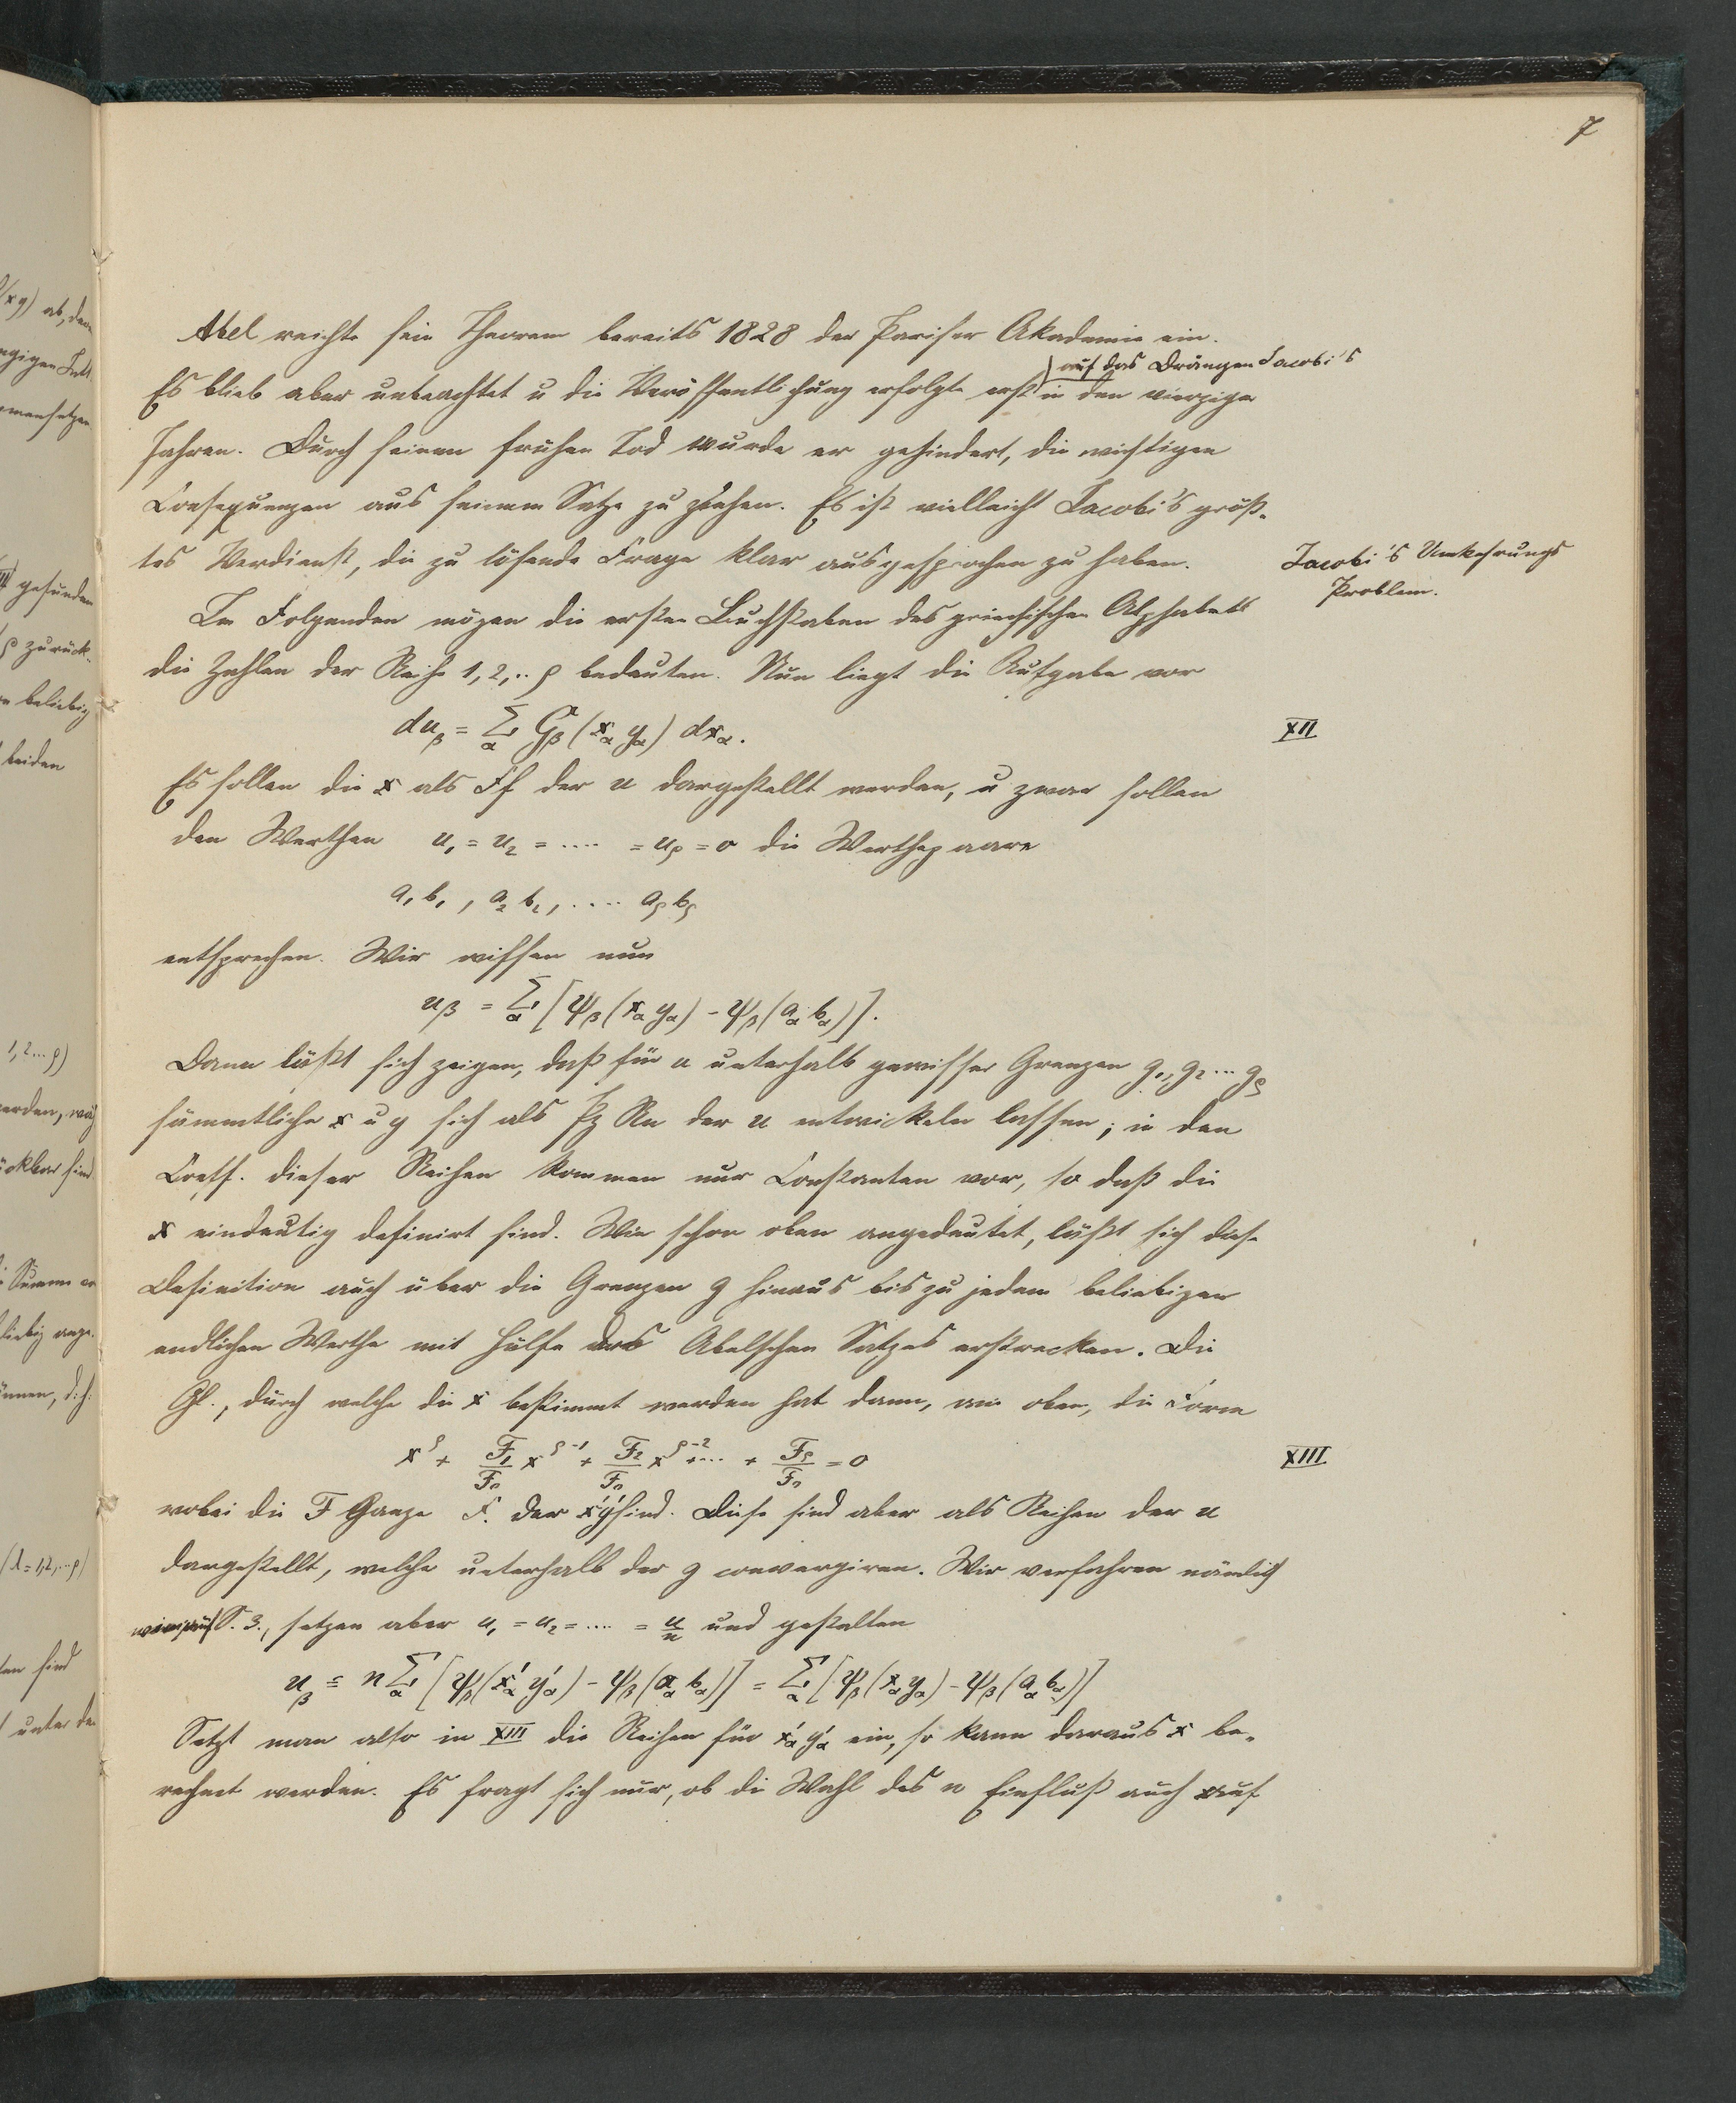 7
Abel reichte sein Theorem bereits 1828 der Pariser Akademie ein.
auf das Drängen Jacobi's
Es blieb aber unbeachtet u die Veröffentlichung erfolgte erst in den vierziger
Jahren. Durch seinen frühen Tod wurde er gehindert, die wichtigen
Consequenzen aus seinem Satze zu ziehen. Es ist vielleicht Jacobi's größ-
tes Verdienst, die zu lösende Frage klar ausgesprochen zu haben.
Jacobi's Umkehrungs
Problem.
Im Folgenden mögen die ersten Buchstaben des griechischen Alphabets
die Zahlen der Reihe 1, 2, .. ρ bedeuten. Nun liegt die Aufgabe vor
du_β = Σ_α G_β (x_α y_α) dx_α.
XII
Es sollen die x als Ff der u dargestellt werden, u zwar sollen
den Werthen u₁ = u₂ = .... = u_ρ = 0 die Werthepaare
a₁ b₁, a₂ b₂, .... a_ρ b_ρ
entsprechen. Wir wissen nun
u_β = Σ_α [ψ_β (x_α y_α) - ψ_β (a_α b_α)].
Dann läßt sich zeigen, daß für u unterhalb gewisser Grenzen g₁, g₂ ... g_ρ
sämmtliche x u y sich als Pz Rn der u entwickeln lassen; in den
Coeff. dieser Reihen kommen nur Constanten vor, so daß die
x eindeutig definirt sind. Wie schon oben angedeutet, läßt sich diese
Definition auch über die Grenzen g hinaus bis zu jedem beliebigen
endlichen Werthe mit Hülfe des Abelschen Satzes erstrecken. Die
Gl., durch welche die x bestimmt werden hat dann, wie oben, die Form
x^ρ + F₁/F₀ x^(ρ-1) + F₂/F₀ x^(ρ-2) + .... + F_ρ/F₀ = 0
XIII
wobei die F Ganze F. der x'y' sind. Diese sind aber als Reihen der u
dargestellt, welche unterhalb der g convergiren. Wir verfahren nämlich
wie auf S. 3., setzen aber u₁ = u₂ = .... = u/n und gestalten
u_β = n Σ_α [ψ_β (x'_α y'_α) - ψ_β (a_α b_α)] = Σ_α [ψ_β (x_α y_α) - ψ_β (a_α b_α)]
Setzt man also in XIII die Reihen für x'_α y'_α ein, so kann daraus x be-
rechnet werden. Es fragt sich nur, ob die Wahl des n Einfluß auch auf